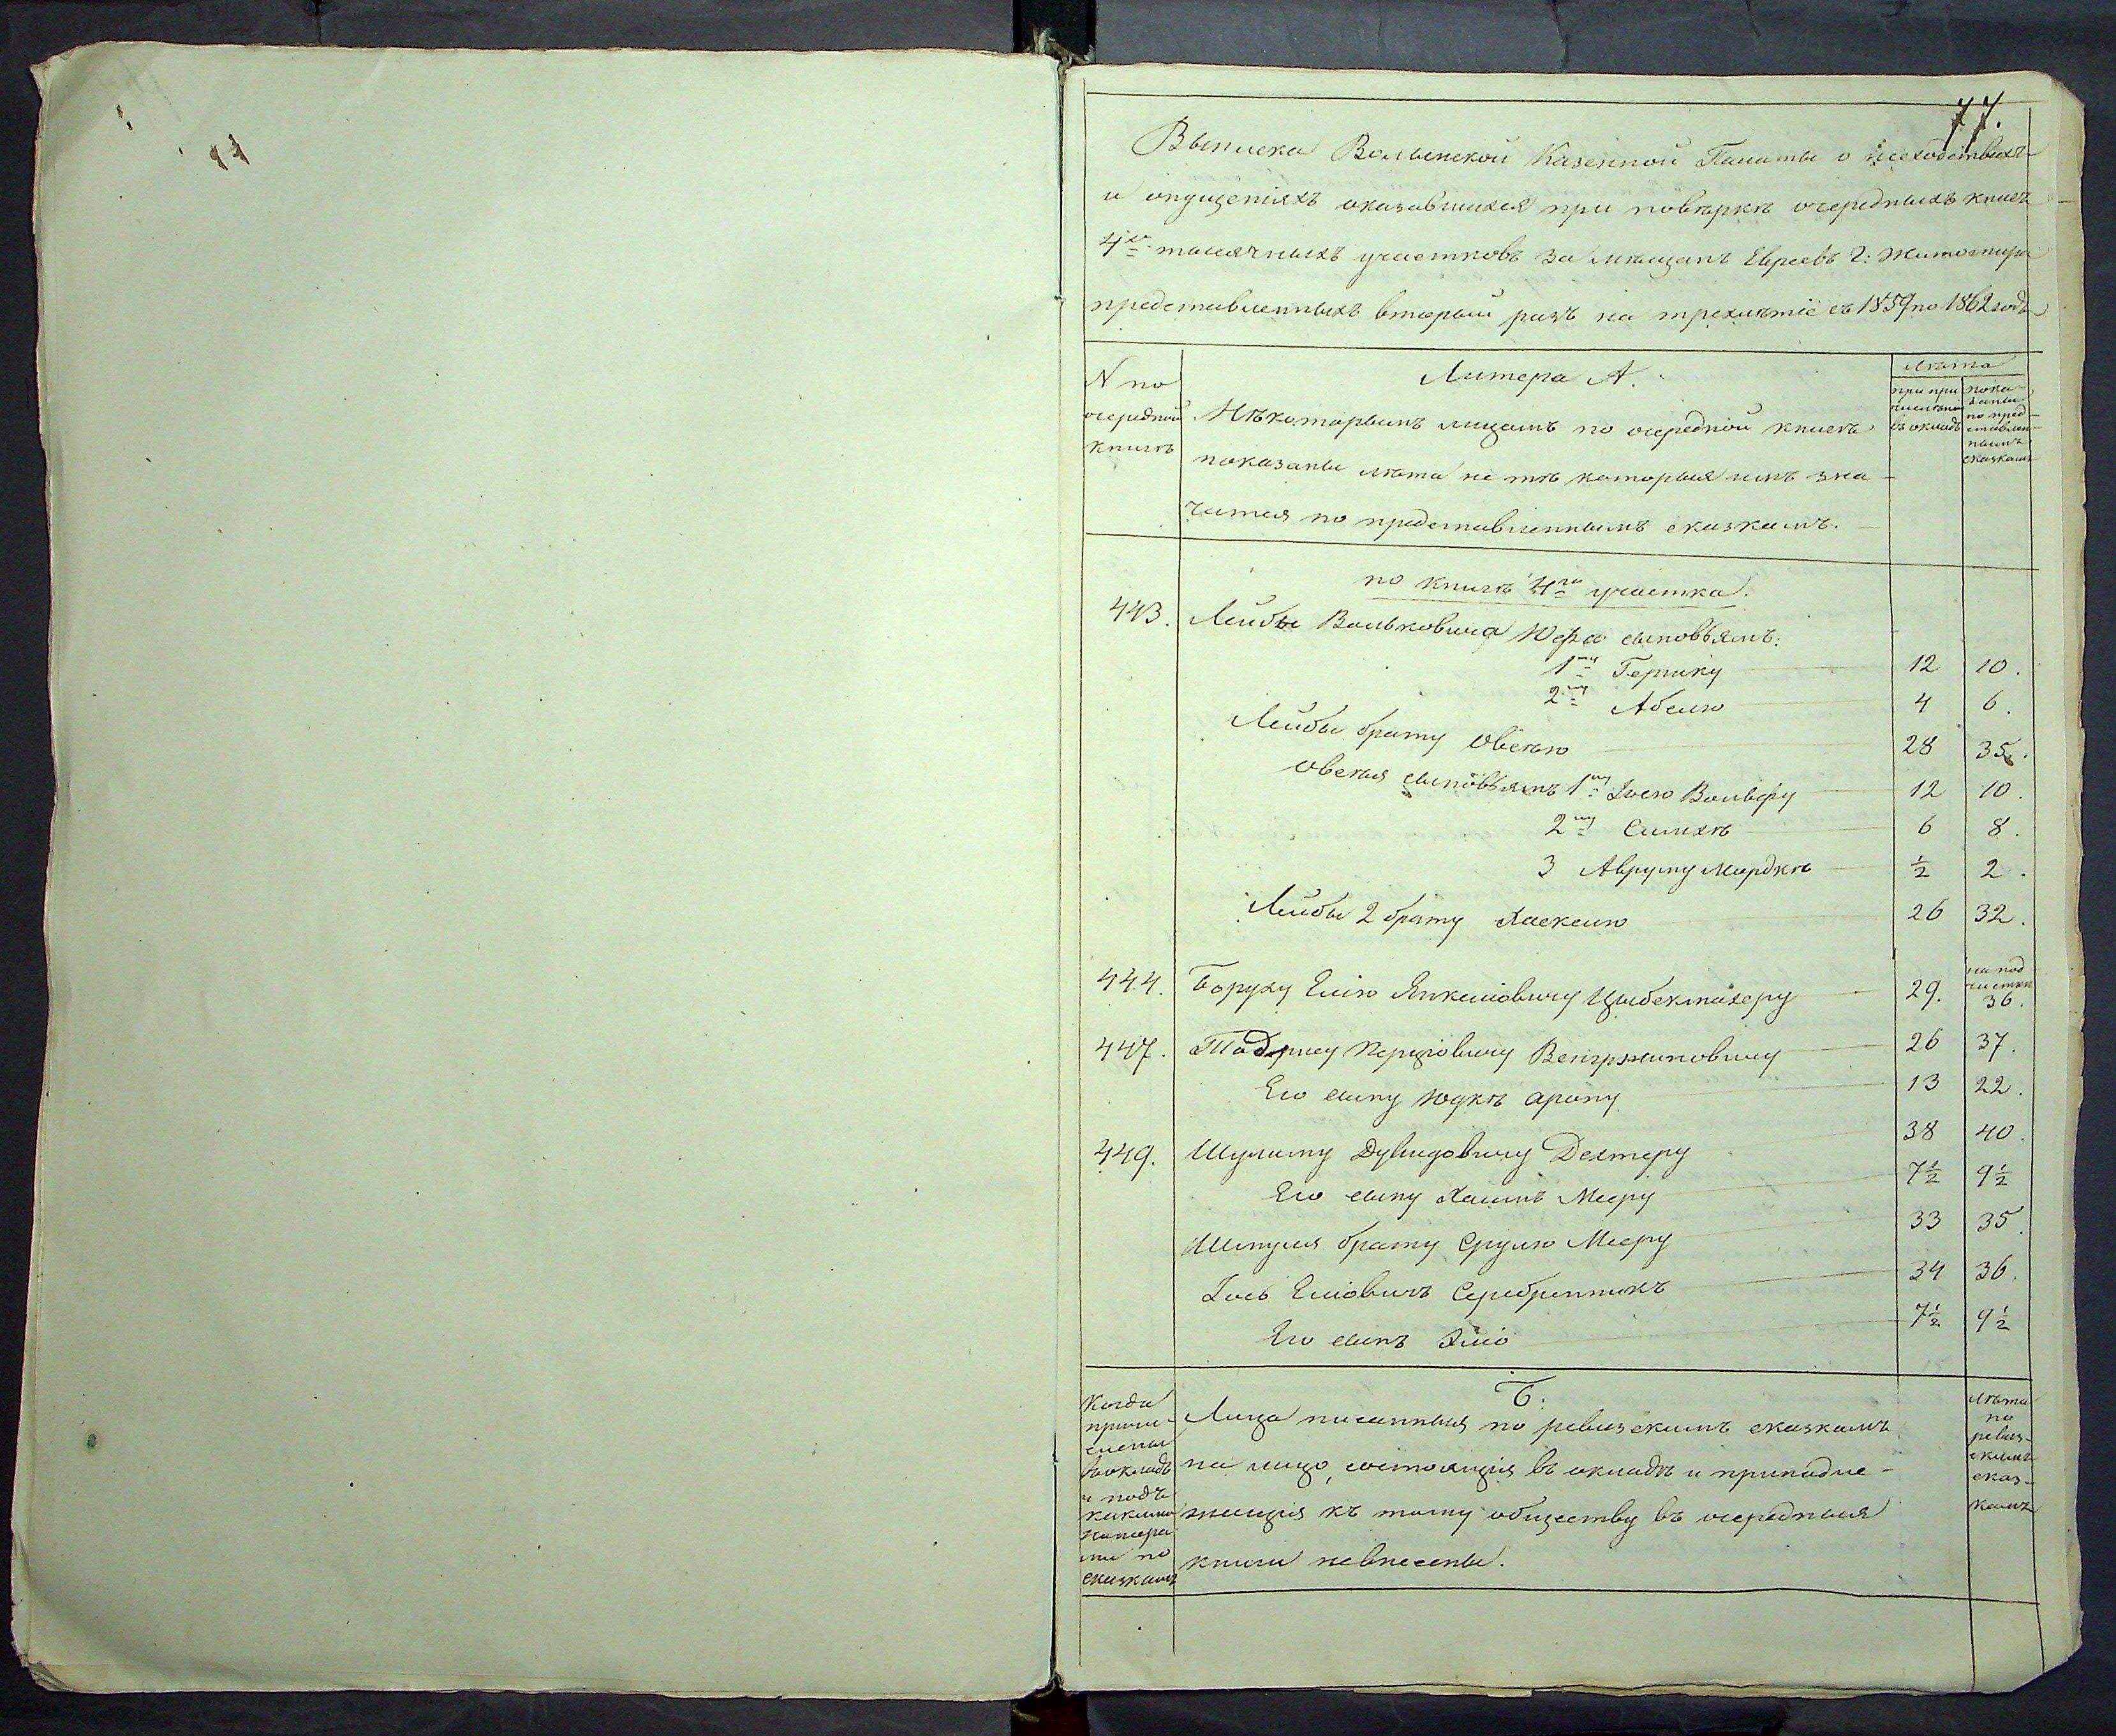 77.
Выписка Волынской Казенной Палаты о несходствахъ
и опущеніяхъ оказавшихся при повѣркѣ очередныхъ книгъ
4хъ тысячныхъ участковъ за мѣщанъ Евреевъ г: Житомира
представленныхъ вторый разъ на трехлѣтіе съ 1859 по 1862 годъ
N по
очередной
книгѣ
Литера А.
Нѣкоторымъ лицамъ по очередной книгѣ
показаны лѣта не тѣ которыя имъ зна-
чатся по представленнымъ сказкамъ.
Лѣта
при при
численіи
въ окладъ
пока-
заны
по пред-
ставлен-
нымъ
сказкамъ
по книгѣ 4го участка.
443. Лейбы Вольковича Юфа сыновьямъ:
1му Гершку 12 10.
2му Абелю 4 6.
Лейбы брату Овсѣю 28 35.
Овсѣя сыновьямъ 1му Іосю Вольфу 12 10.
2му Симхѣ 6 8.
3 Авруму Мордкѣ ½ 2.
Лейбы 2 брату Хаскелю 26 32.
444. Боруху Елію Янкеліовичу Цыбекмахеру 29. на под
чисткѣ
36.
447. Тодрису Перціовичу Венгржиновичу 26 37.
Его сыну Юдкѣ Арону 13 22.
449. Шулиму Дувидовичу Дехтеру 38 40.
Его сыну Хаимъ Мееру 7½ 9½
брату Срулю Мееру 33 35.
Іось Еліовичъ Серебренникъ 34 36.
Его сынъ Эліо 7½ 9½
Когда
причи-
слены
въ окладъ
и подъ
какими
номера
ми по
сказкамъ
Б:
Лица писанныя по ревизскимъ сказкамъ
на лицо, состоящія въ окладѣ и принадле-
жащія къ тому обществу въ очередныя
книги невнесены.
Лѣта
по
ревиз-
скимъ
сказ-
камъ